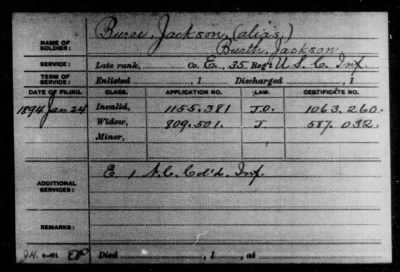 NAME OF SOLDIER: Burse, Jackson, (alias,)
Burth, Jackson
SERVICE: Late rank, Co. E, 35 Reg't U.S.C. Inf.
TERM OF SERVICE: Enlisted , 1 Discharged , 1
DATE OF FILING. CLASS. APPLICATION NO. LAW. CERTIFICATE NO.
1894 Jan 24 Invalid, 1155.381 J.O. 1063.260.
Widow, 809.501. J. 587.032.
Minor,
ADDITIONAL SERVICES: E 1 N.C. Col'd. Inf.
REMARKS:
Died , 1 , at